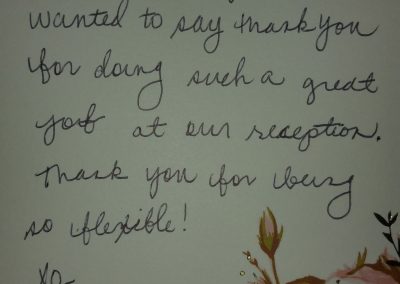 wanted to say thank you
for doing such a great
job at our reception.
Thank you for being
so flexible!
xo-